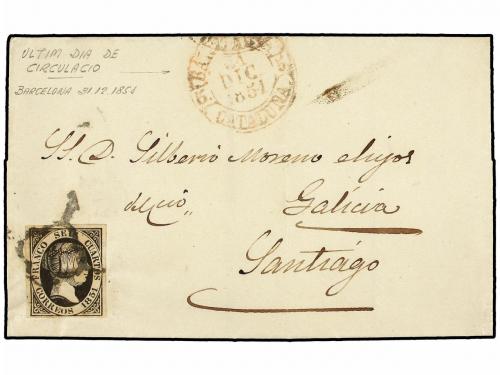 ULTIM DIA DE
CIRCULACIO
BARCELONA 31.12.1851
BARCELONA
31
DIC
1851
CATALUÑA
SS. D. Silberio Moreno e hijos
del cio
Galicia
Santiago
FRANCO SEIS CUARTOS
CORREOS 1851